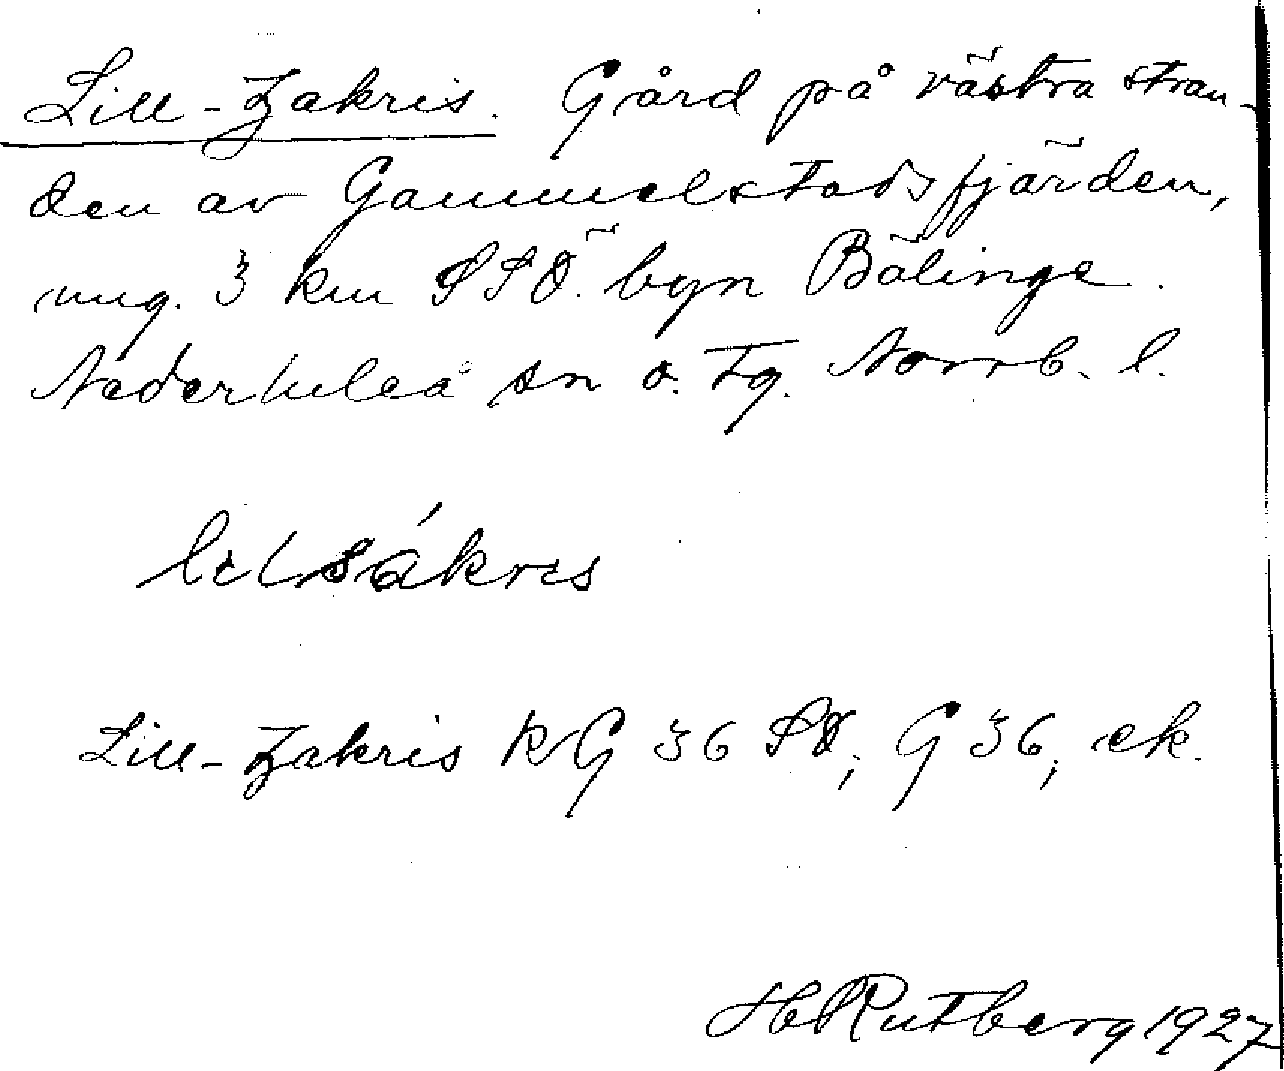 Lill-Zakris. Gård på västra stran-
den av Gammelstadsfjärden,
ung. 3 km SSÖ. byn Bälinge.
Nederluleå sn o. tg. Norrb. l.
Lill-Zakris KG 36 SÖ; G 36, ek.
H Rutberg 1927